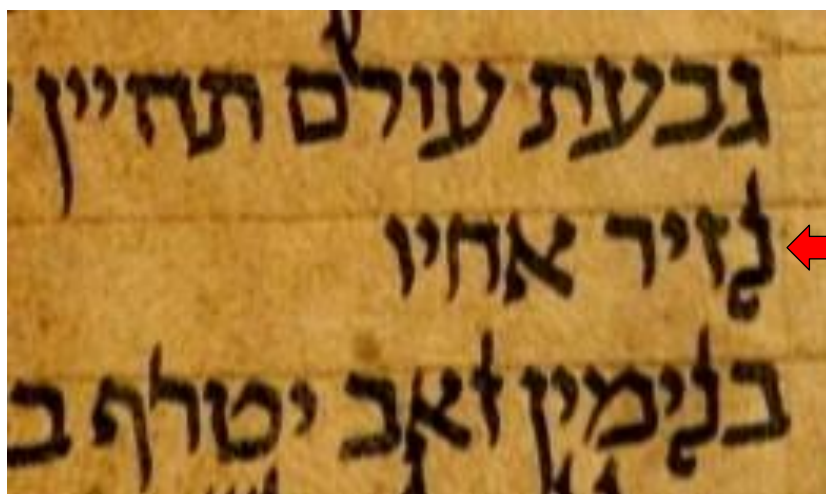 גבעת עולם תהיין
נזיר אחיו
בנימין זאב יטרף ב